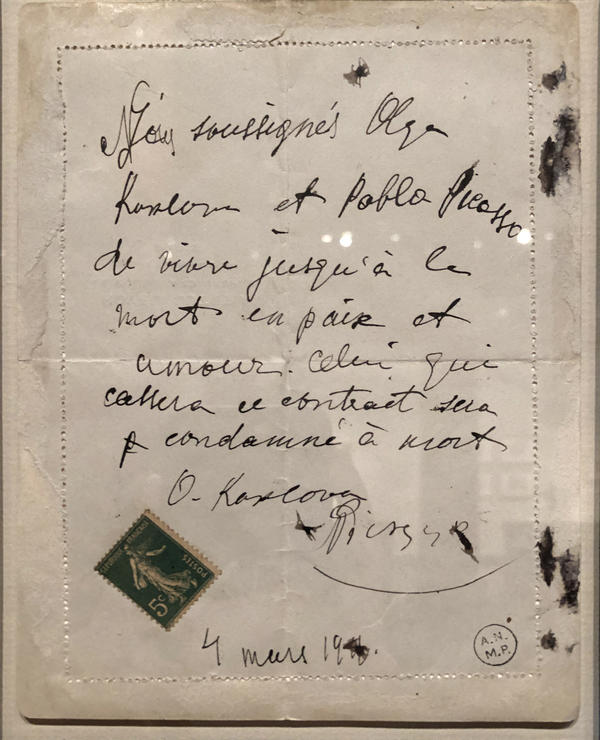 Nous soussignés Olga
Koklova et Pablo Picasso
de vivre jusqu'à la
mort en paix et
amour. Celui qui
cassera ce contract sera
condamné à mort
O. Koklova
Picasso
REPUBLIQUE FRANÇAISE
POSTES
5c
4 mars
A.N.
M.P.